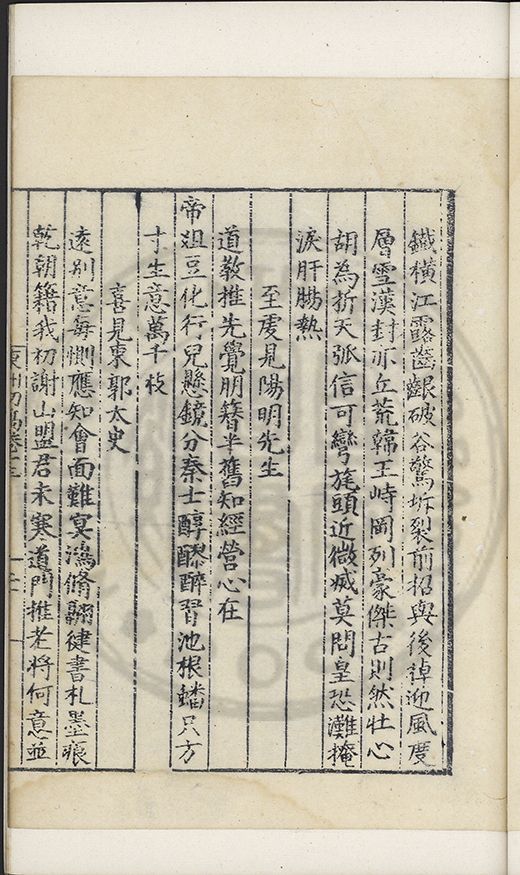 鐵橫江露齒齦破谷驚坼裂前招與後掉迎風度
層雪漢封亦丘荒韓王峙岡列豪傑古則然壯心
胡為折天弧信可彎旄頭近微㓕莫問皇恐灘掩
淚肝腸熱
至虔見陽明先生
道敎推先覺朋簮半舊知經營心在
帝俎豆化行兒懸鏡分秦士醇醪醉習池根蟠只方
寸生意萬千枝
喜見東郭太史
遠别意每惻應知會面難冥鴻脩翮健書札墨痕
乾朝籍我初謝山盟君未寒道門推老將何意並